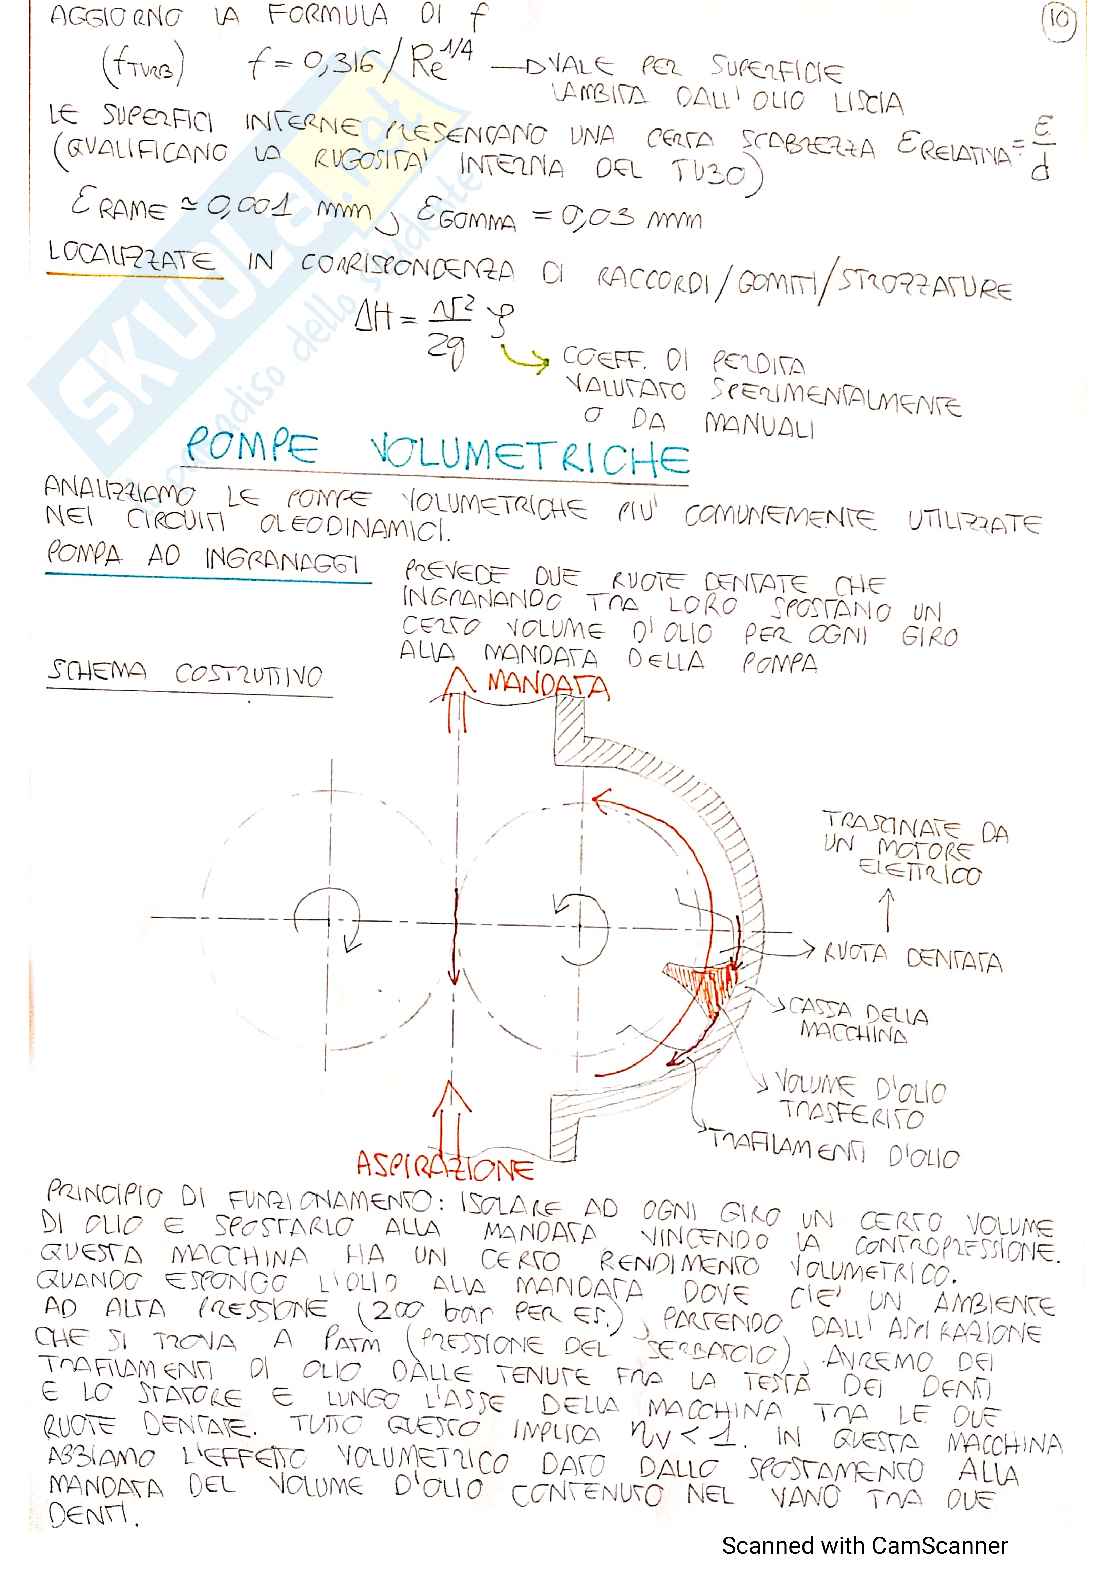 AGGIORNO LA FORMULA DI f
10
(fTURB) f = 0,316/Re^1/4 → VALE PER SUPERFICIE
LAMBITA DALL'OLIO LISCIA
LE SUPERFICI INTERNE PRESENTANO UNA CERTA SCABREZZA ε RELATIVA = ε/d
(QUALIFICANO LA RUGOSITA' INTERNA DEL TUBO)
ε RAME ≃ 0,001 mm, ε GOMMA = 0,03 mm
LOCALIZZATE IN CORRISPONDENZA DI RACCORDI/GOMITI/STROZZATURE
ΔH = v²/2g ξ
COEFF. DI PERDITA
VALUTATO SPERIMENTALMENTE
O DA MANUALI
POMPE VOLUMETRICHE
ANALIZZIAMO LE POMPE VOLUMETRICHE PIU' COMUNEMENTE UTILIZZATE
NEI CIRCUITI OLEODINAMICI.
POMPA AD INGRANAGGI
PREVEDE DUE RUOTE DENTATE CHE
INGRANANDO TRA LORO SPOSTANO UN
CERTO VOLUME D'OLIO PER OGNI GIRO
ALLA MANDATA DELLA POMPA
SCHEMA COSTRUTTIVO
MANDATA
TRASCINATE DA
UN MOTORE
ELETTRICO
RUOTA DENTATA
CASSA DELLA
MACCHINA
VOLUME D'OLIO
TRASFERITO
TRAFILAMENTI D'OLIO
ASPIRAZIONE
PRINCIPIO DI FUNZIONAMENTO: ISOLARE AD OGNI GIRO UN CERTO VOLUME
DI OLIO E SPOSTARLO ALLA MANDATA VINCENDO LA CONTROPRESSIONE.
QUESTA MACCHINA HA UN CERTO RENDIMENTO VOLUMETRICO.
QUANDO ESPONGO L'OLIO ALLA MANDATA DOVE C'E' UN AMBIENTE
AD ALTA PRESSIONE (200 bar PER ES.), PARTENDO DALL'ASPIRAZIONE
CHE SI TROVA A PATM (PRESSIONE DEL SERBATOIO), AVREMO DEI
TRAFILAMENTI DI OLIO DALLE TENUTE FRA LA TESTA DEI DENTI
E LO STATORE E LUNGO L'ASSE DELLA MACCHINA TRA LE DUE
RUOTE DENTATE. TUTTO QUESTO IMPLICA ηv < 1. IN QUESTA MACCHINA
ABBIAMO L'EFFETTO VOLUMETRICO DATO DALLO SPOSTAMENTO ALLA
MANDATA DEL VOLUME D'OLIO CONTENUTO NEL VANO TRA DUE
DENTI.
SKUOLA.net
paradiso dello studente
Scanned with CamScanner